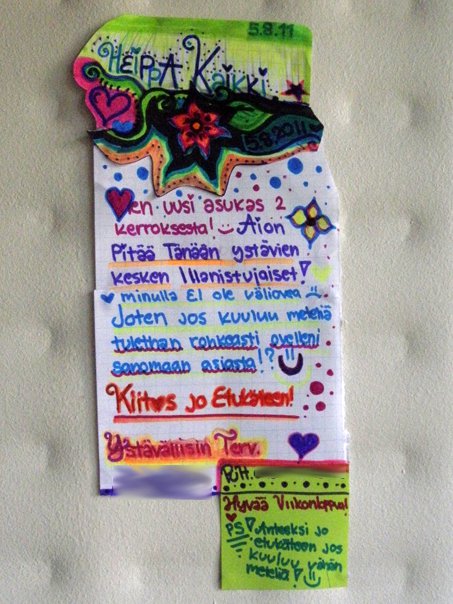 5.8.11
HEIPPA KAIKKI
5.8.2011
Olen uusi asukas 2
kerroksesta! Aion
Pitää Tänään ystävien
kesken Illanistujaiset!
minulla EI ole väliovea
Joten jos kuuluu meteliä
tulethan ronkeasti ovelleni
sanomaan asiasta!?
Kiitos jo Etukäteen!
Ystävällisin Terv.
Puh.
Hyvää Viikonloppua!
PS! Anteeksi jo
etukäteen jos
kuuluu vähän
meteliä!